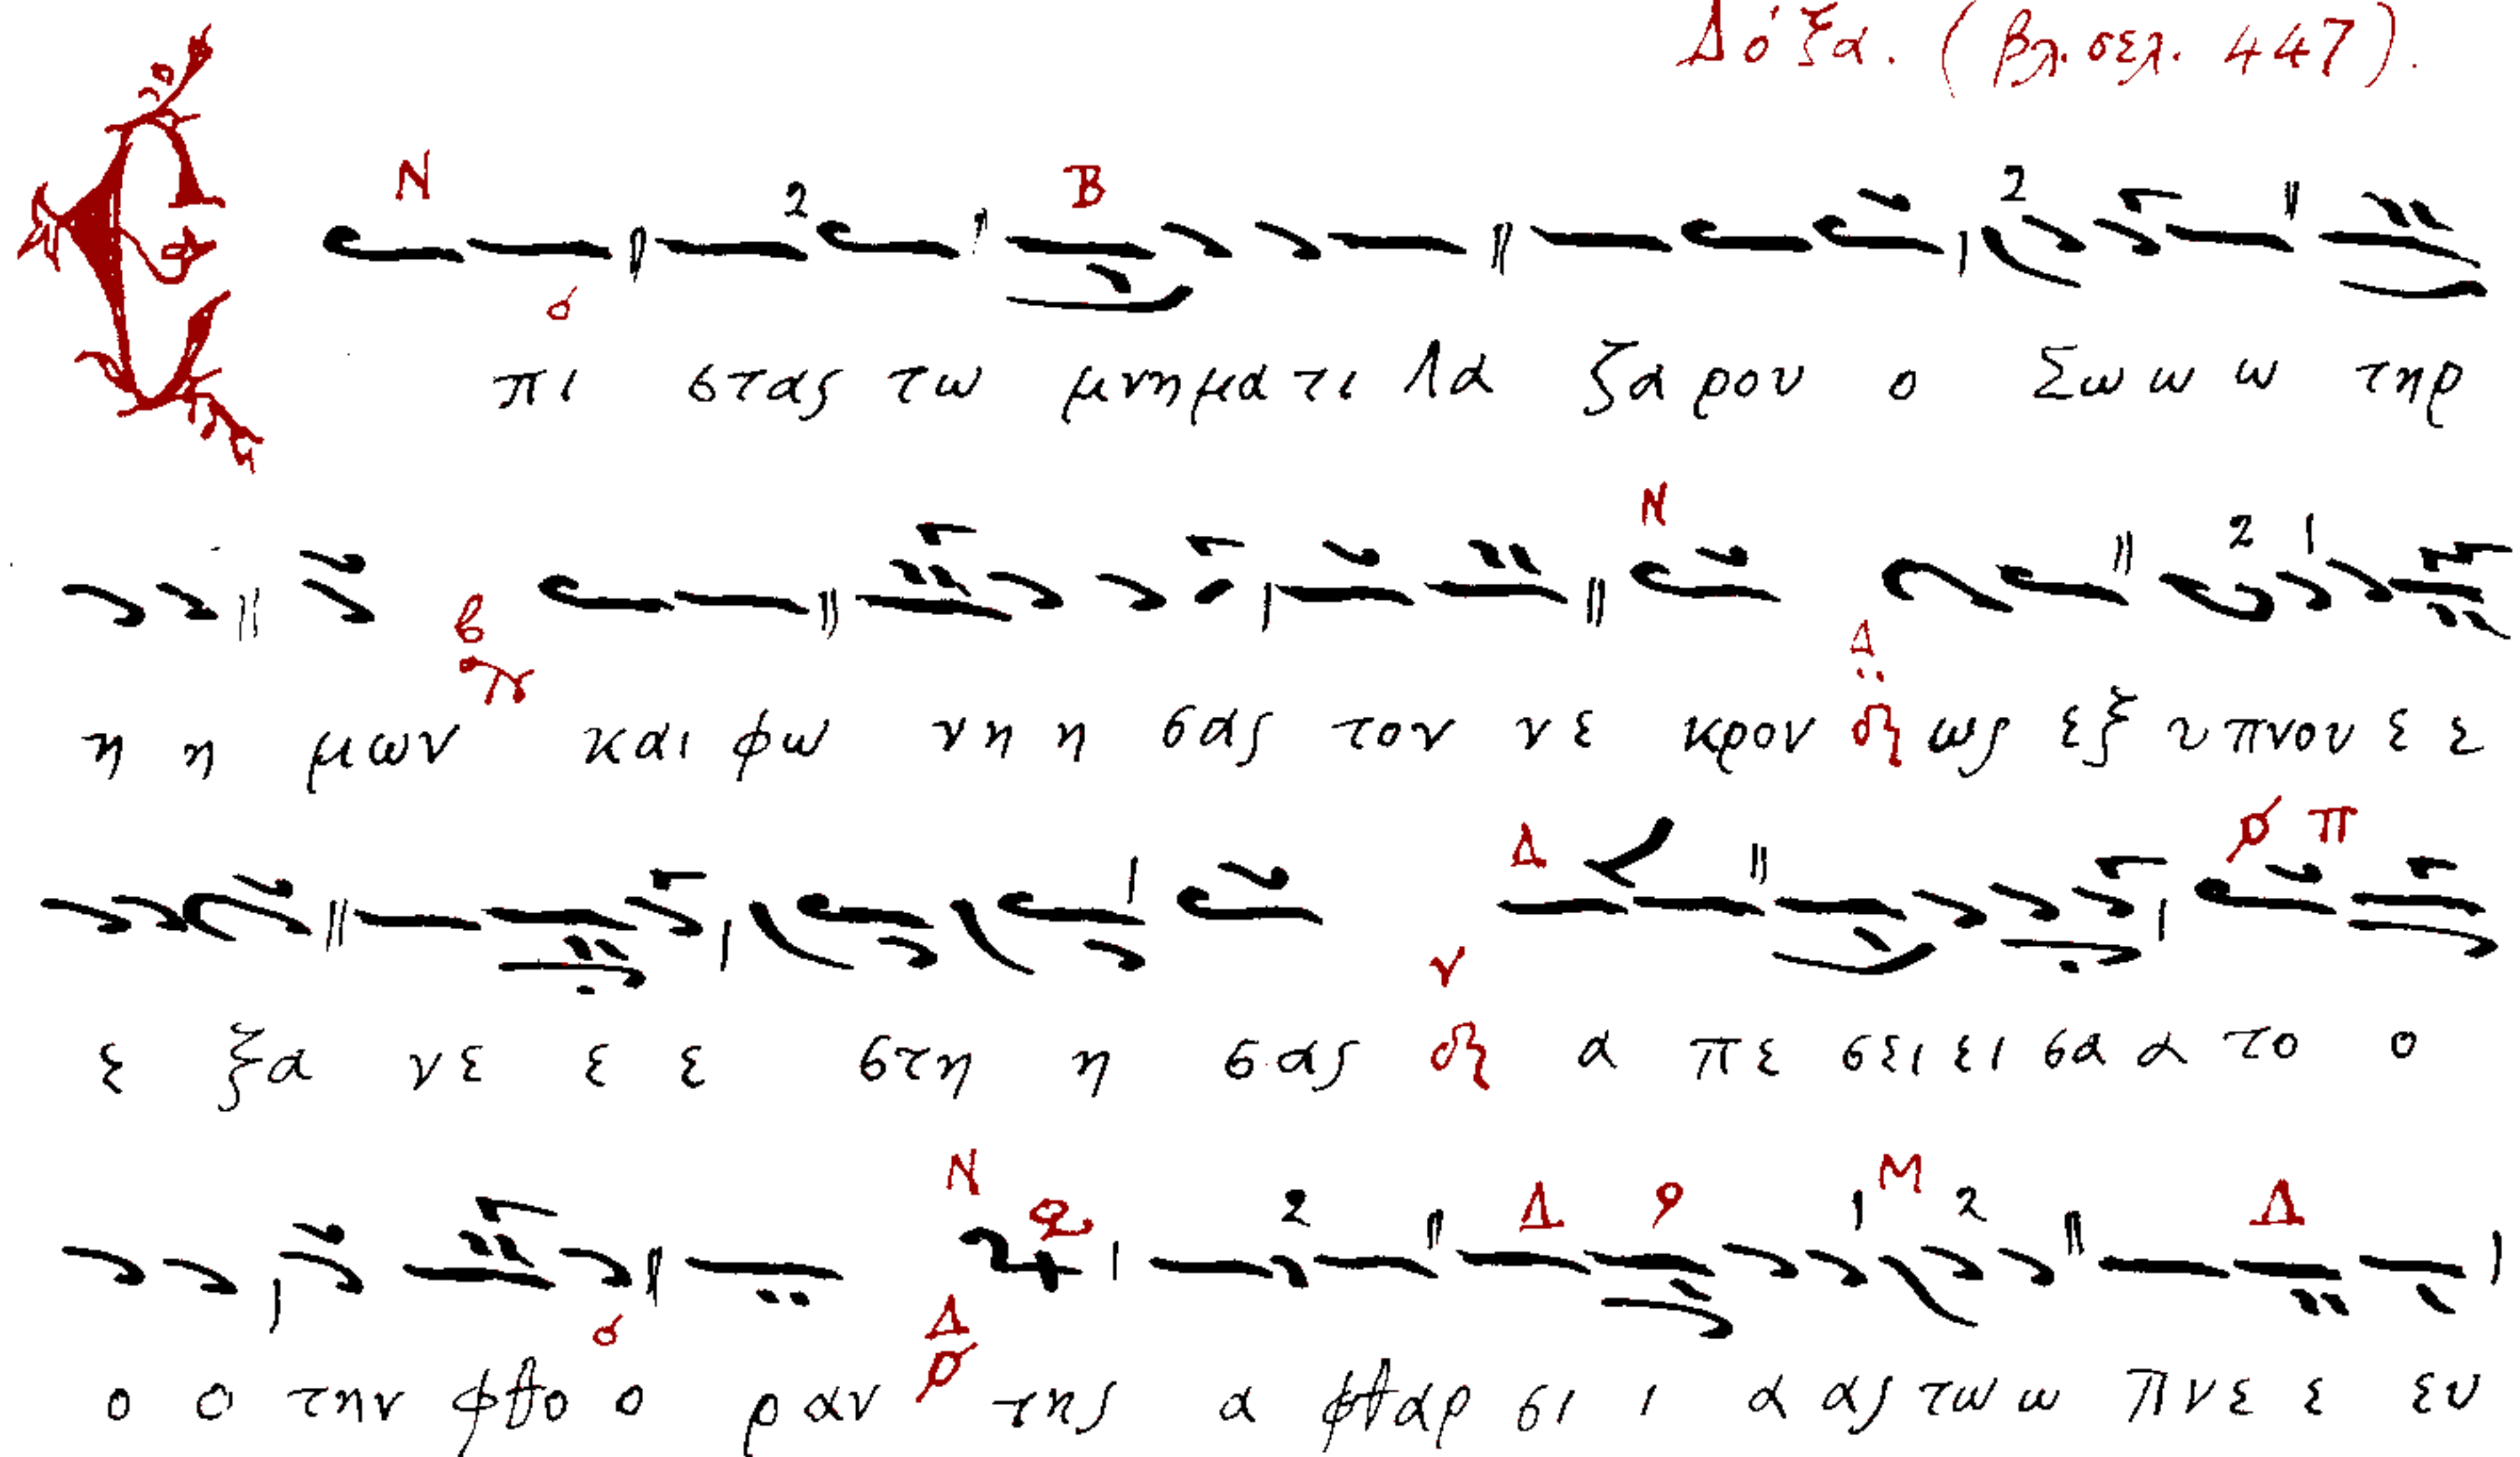 Δόξα. (βλ. σελ. 447).
Ε πι στας τω μνηματι Λα ζα ρου ο Σω ω ω τηρ
η η μων και φω νη η σας τον νε κρον ως εξ υπνου ε ε
ε ξα νε ε ε στη η σας α πε σει ει σα α το ο
ο ο την φθο ο ραν της α φθαρ σι ι α ας τω ω πνε ε ευ